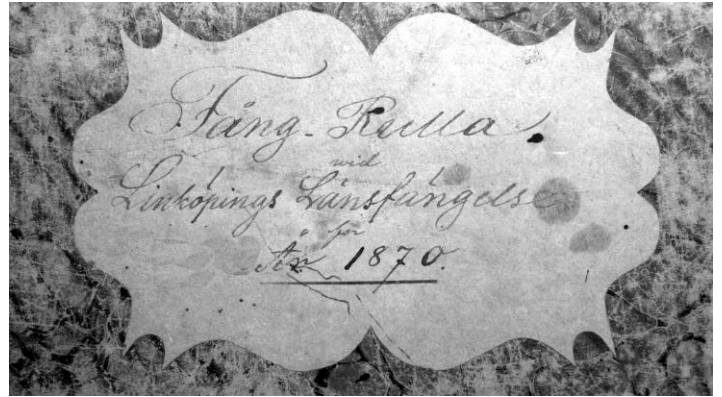 Fång-Rulla
wid
Linköpings Länsfängelse
för
År 1870.